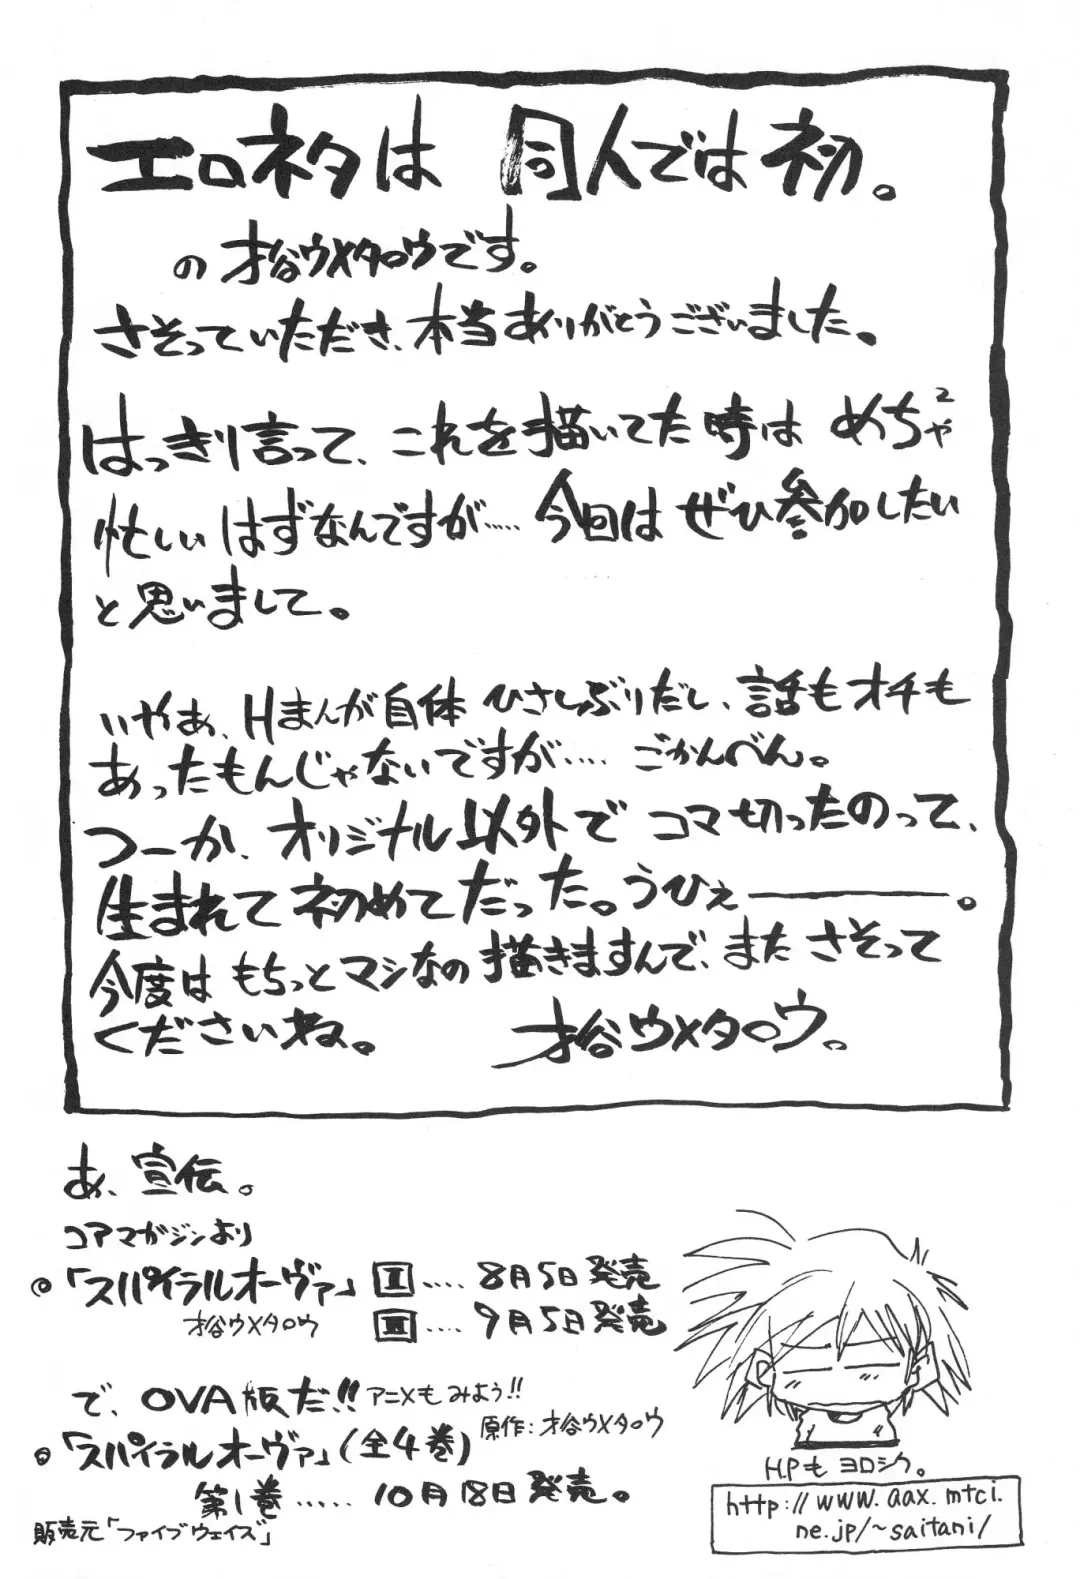 エロネタは 同人では初。
の才谷ウメタロウです。
さそっていただき、本当ありがとうございました。
はっきり言って、これを描いてた時は めちゃ2
忙しい はずなんですが…… 今回は ぜひ参加したい
と思いまして。
いやぁ、Hまんが自体 ひさしぶりだし、話もオチも
あったもんじゃないですが…… ごかんべん。
つーか、オリジナル以外で コマ切ったのって、
生まれて初めてだった。うひぇ―――。
今度は もちっとマシなの描きますんで、また さそって
くださいね。 才谷ウメタロウ。
あ、宣伝。
コアマガジンより
◎「スパイラルオーヴァ」 Ⅱ …… 8月5日発売
才谷ウメタロウ Ⅲ …… 9月5日発売
で、OVA版だ!! アニメもみよう!!
◎「スパイラルオーヴァ」(全4巻) 原作:才谷ウメタロウ
第1巻…… 10月18日発売。
販売元「ファイブウェイズ」
H.Pも ヨロシク。
http://www.aax.mtci.
ne.jp/~saitani/